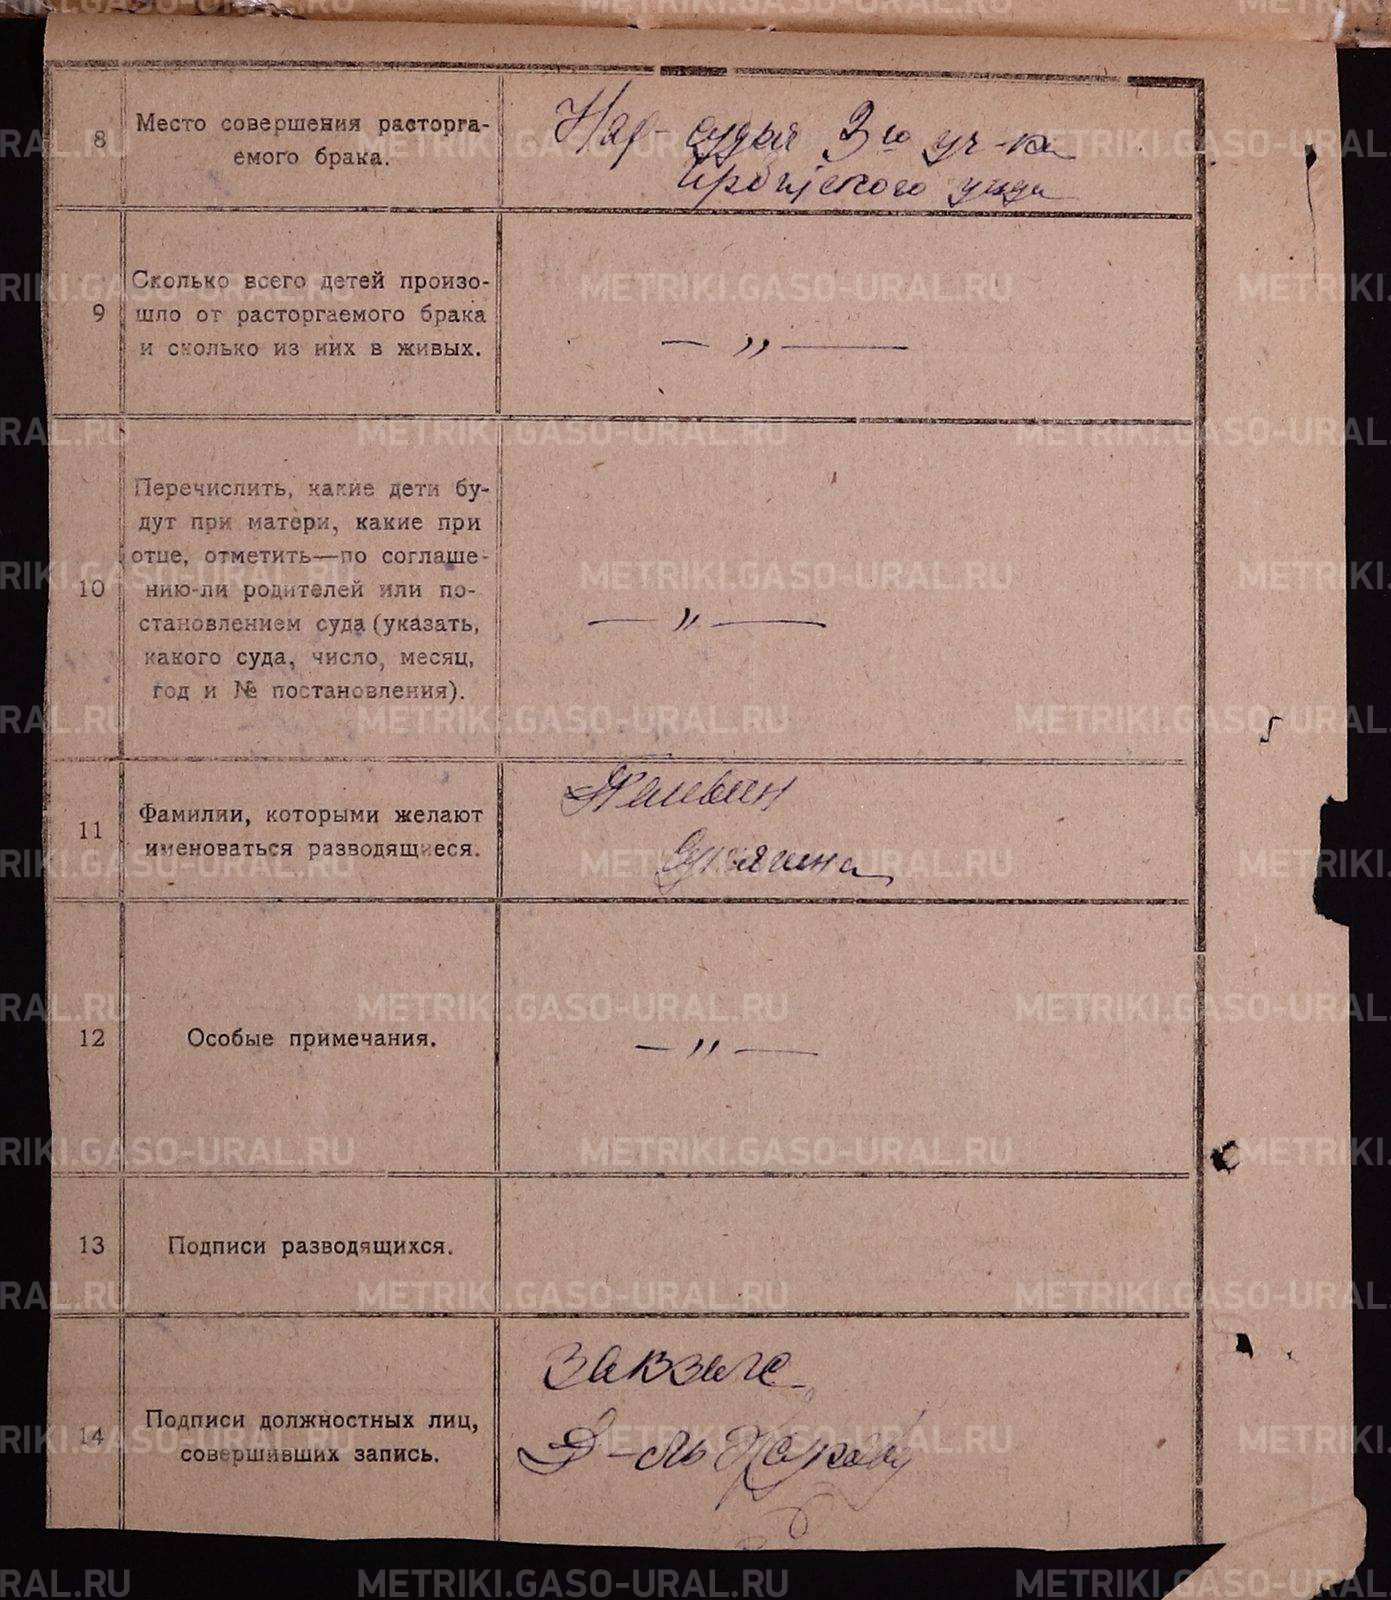 8
Место совершения расторга-
емого брака.
Нар-судья 3го уч-ка
Ирбитского уезда
9
Сколько всего детей произо-
шло от расторгаемого брака
и сколько из них в живых.
— „ —
10
Перечислить, какие дети бу-
дут при матери, какие при
отце, отметить—по соглаше-
нию-ли родителей или по-
становлением суда (указать,
какого суда, число, месяц,
год и № постановления).
— „ —
11
Фамилии, которыми желают
именоваться разводящиеся.
12
Особые примечания.
— „ —
13
Подписи разводящихся.
14
Подписи должностных лиц,
совершивших запись.
Завзаг
Д-ль
METRIKI.GASO-URAL.RU